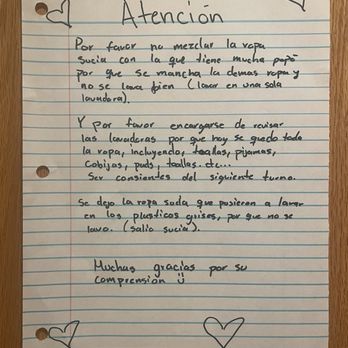 Atención
Por favor no mezclar la ropa
sucia con la que tiene mucha popó
por que se mancha la demas ropa y
no se lava bien (lavar en una sola
lavadora).
Y por favor encargarse de revisar
las lavadoras por que hoy se quedo toda
la ropa, incluyendo, toallas, pijamas,
cobijas, pads, toallas. etc...
Ser consientes del siguiente turno.
Se dejo la ropa sucia que pusieron a lavar
en los plasticos grises, por que no se
lavo. (salio sucia).
Muchas gracias por su
comprensión